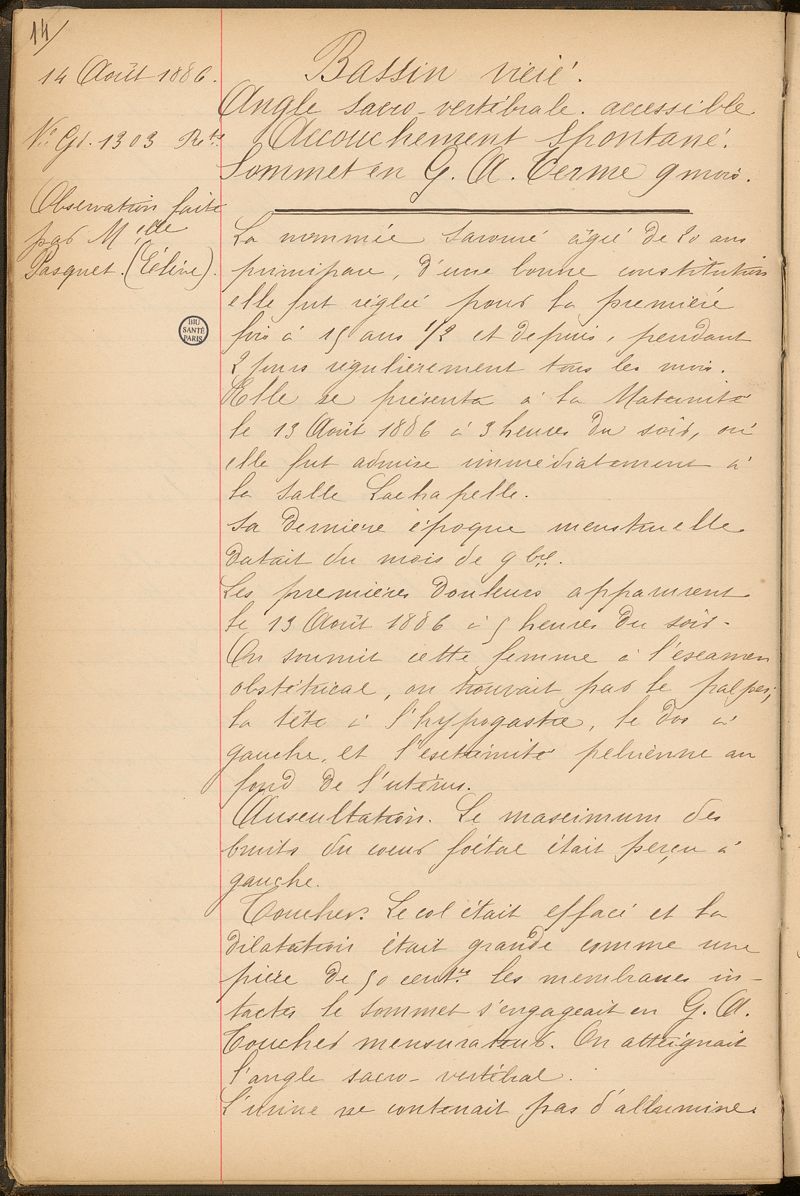 14/
14 Août 1886.
N° Gd. 1303 Rt.e
Observation faite
par Melle
Pasquet. (Elève).
BIU
SANTÉ
PARIS
Bassin vicié.
Angle sacro-vertébrale. accessible
Accouchement Spontané.
Sommet en G. A. Terme 9 mois.
La nommée agée de 20 ans
primipare, d'une bonne constitution
elle fut réglée pour la première
fois à 15 ans 1/2 et depuis, pendant
2 jours régulièrement tous les mois.
Elle se présenta à la Maternité
le 13 Août 1886 à 3 heures du soir, où
elle fut admise immédiatement à
la salle Lachapelle.
Sa dernière époque menstruelle
datait du mois de 9bre.
Les premières douleurs apparurent
le 13 Août 1886 à 5 heures du soir.
On soumit cette femme à l'examen
obstétrical, on trouvait par le palper,
la tête à l'hypogastre, le dos à
gauche, et l'extrémité pelvienne au
fond de l'utérus.
Auscultation. Le maximum des
bruits du coeur foëtal était perçu à
gauche.
Toucher. Le col était effacé et la
dilatation était grande comme une
pièce de 50 cent.es les membranes in-
tactes le sommet s'engageait en G. A.
Toucher mensurateur. On atteignait
l'angle sacro-vertébral.
L'urine ne contenait pas d'albumine.